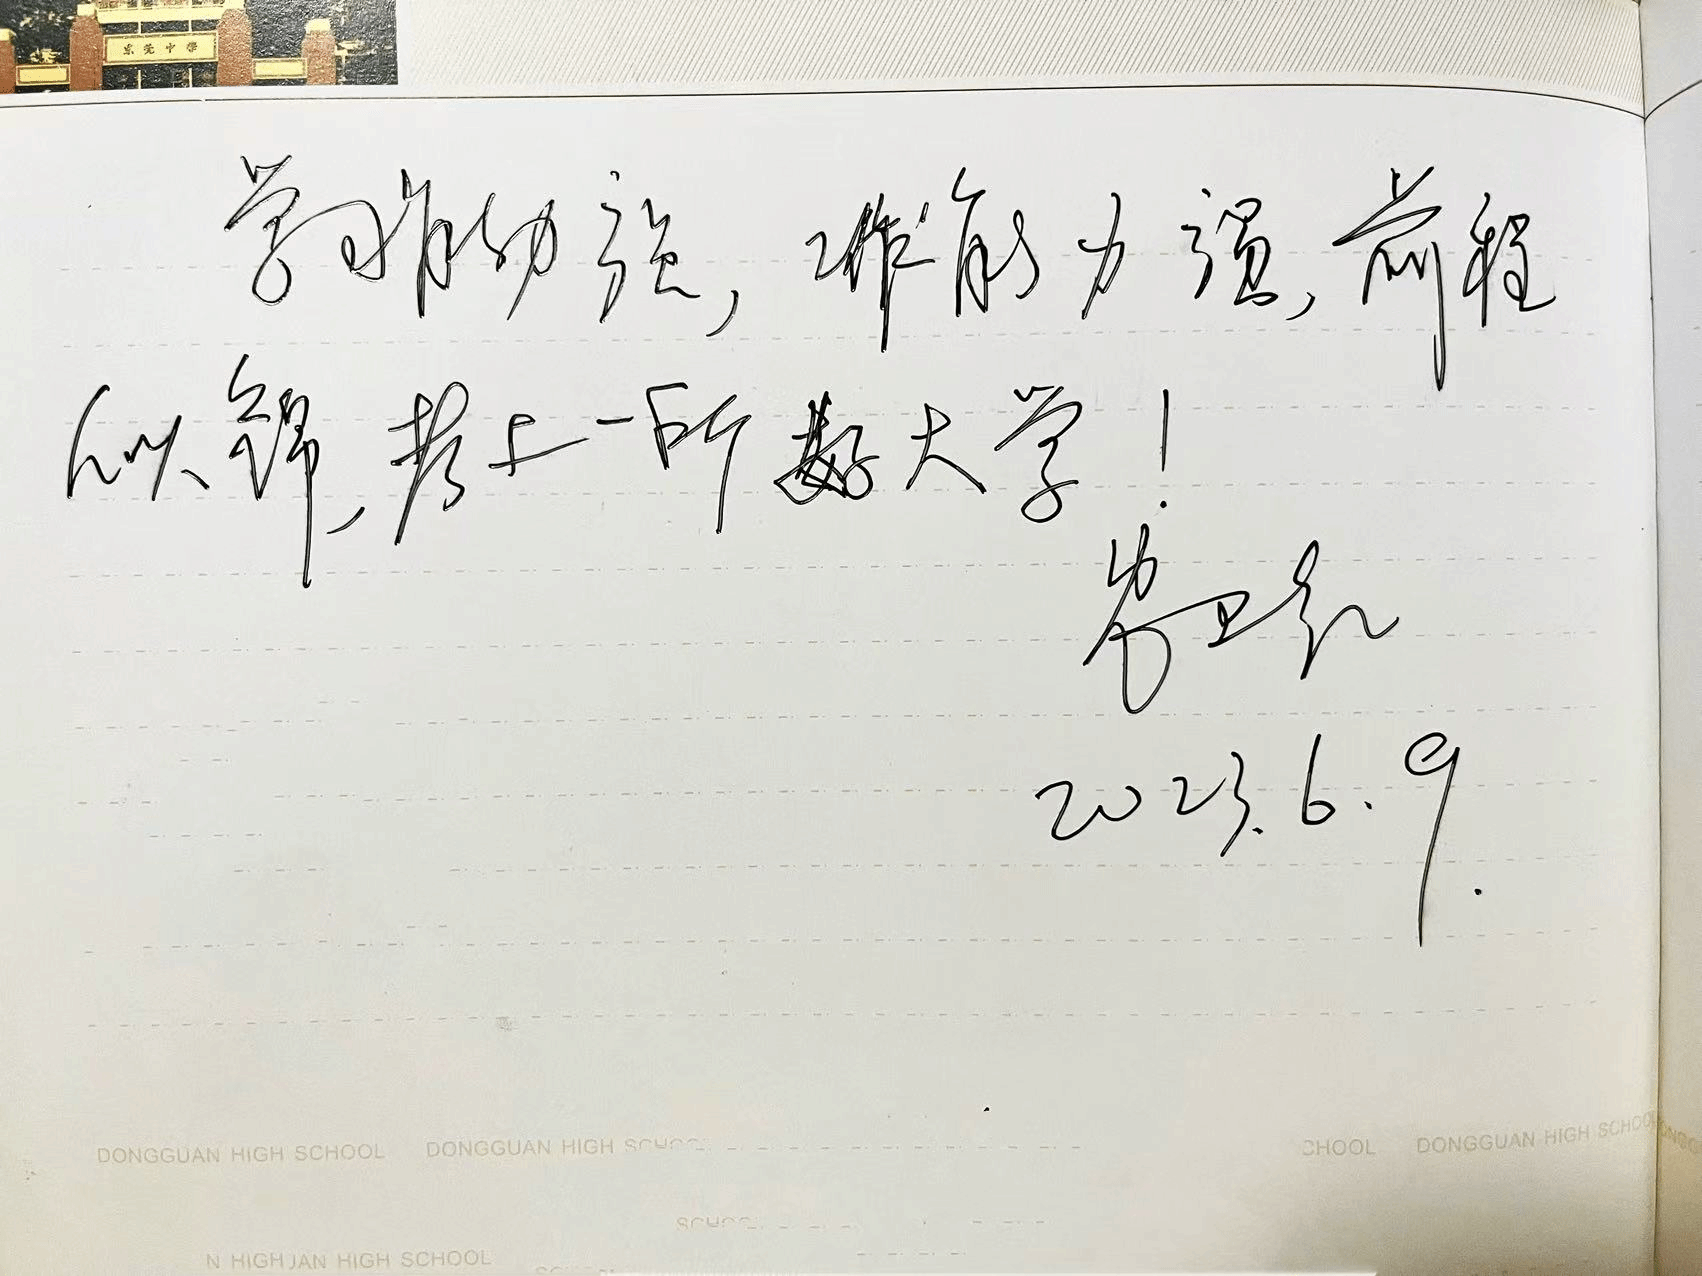 东莞中学
学习能力强，工作能力强，前程
似锦，考上一所好大学！
2023.6.9.
DONGGUAN HIGH SCHOOL DONGGUAN HIGH SCHOOL CHOOL DONGGUAN HIGH SCHOOL
SCHOOL
N HIGH JAN HIGH SCHOOL